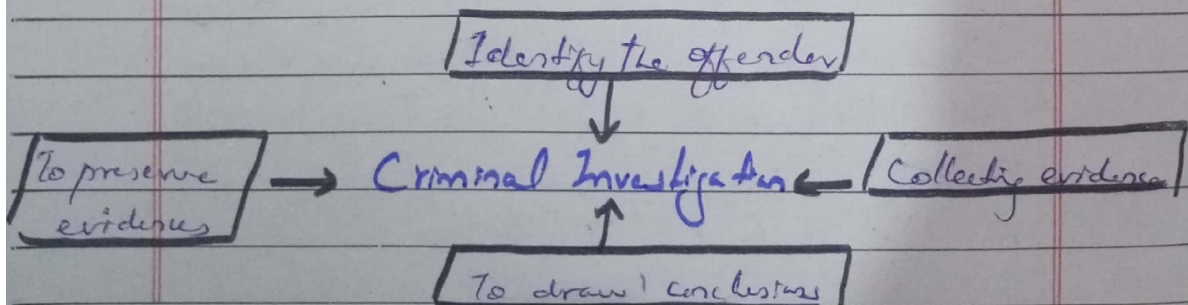 Identify the offender
To preserve
evidences
Criminal Investigation
Collecting evidence
To draw conclusions